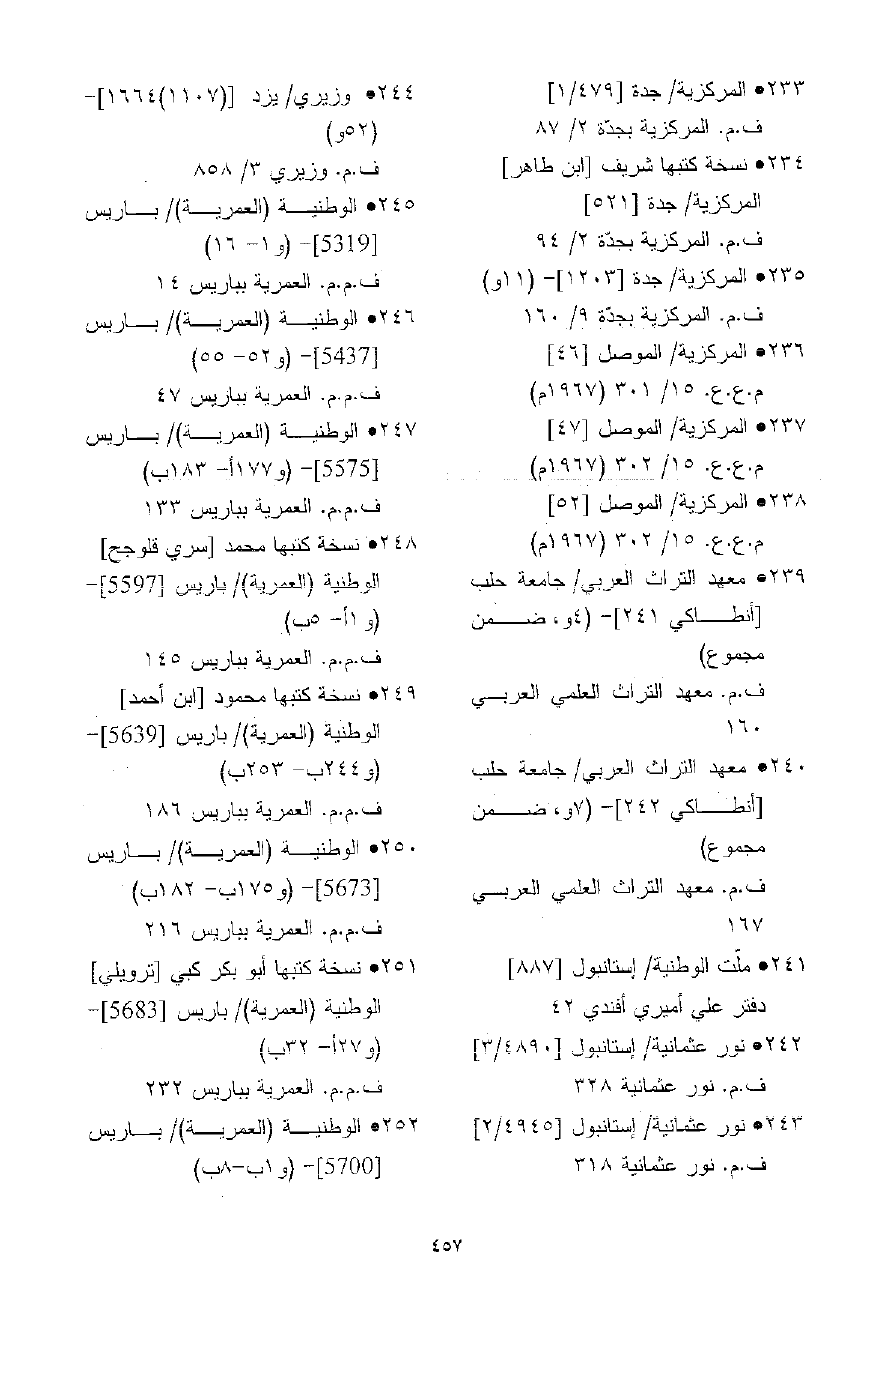 ٢٣٣• المركزية/ جدة [١/٤٧٩]
ف.م. المركزية بجدّة ٢/ ٨٧
٢٣٤• نسخة كتبها شريف [ابن طاهر]
المركزية/ جدة [٥٢١]
ف.م. المركزية بجدّة ٢/ ٩٤
٢٣٥• المركزية/ جدة [١٢٠٣]- (١١و)
ف.م. المركزية بجدّة ٩/ ١٦٠
٢٣٦• المركزية/ الموصل [٤٦]
م.ع.ع. ١٥/ ٣٠١ (١٩٦٧م)
٢٣٧• المركزية/ الموصل [٤٧]
م.ع.ع. ١٥/ ٣٠٢ (١٩٦٧م)
٢٣٨• المركزية/ الموصل [٥٢]
م.ع.ع. ١٥/ ٣٠٢ (١٩٦٧م)
٢٣٩• معهد التراث العربي/ جامعة حلب
[أنطاكي ٢٤١]- (٤و، ضمن
مجموع)
ف.م. معهد التراث العلمي العربي
١٦٠
٢٤٠• معهد التراث العربي/ جامعة حلب
[أنطاكي ٢٤٢]- (٧و، ضمن
مجموع)
ف.م. معهد التراث العلمي العربي
١٦٧
٢٤١• ملّت الوطنية/ إستانبول [٨٨٧]
دفتر علي أميري أفندي ٤٢
٢٤٢• نور عثمانية/ إستانبول [٣/٤٨٩٠]
ف.م. نور عثمانية ٣٢٨
٢٤٣• نور عثمانية/ إستانبول [٢/٤٩٤٥]
ف.م. نور عثمانية ٣١٨
٢٤٤• وزيري/ يزد [(١١٠٧)١٦٦٤]-
(٥٢و)
ف.م. وزيري ٣/ ٨٥٨
٢٤٥• الوطنية (العمرية)/ باريس
[5319]- (و١- ١٦)
ف.م.م. العمرية بباريس ١٤
٢٤٦• الوطنية (العمرية)/ باريس
[5437]- (و٥٢- ٥٥)
ف.م.م. العمرية بباريس ٤٧
٢٤٧• الوطنية (العمرية)/ باريس
[5575]- (و١٧٧أ- ١٨٣ب)
ف.م.م. العمرية بباريس ١٣٣
٢٤٨• نسخة كتبها محمد [سري قلوجج]
الوطنية (العمرية)/ باريس [5597]-
(و ١أ- ٥ب)
ف.م.م. العمرية بباريس ١٤٥
٢٤٩• نسخة كتبها محمود [ابن أحمد]
الوطنية (العمرية)/ باريس [5639]-
(و٢٤٤ب- ٢٥٣ب)
ف.م.م. العمرية بباريس ١٨٦
٢٥٠• الوطنية (العمرية)/ باريس
[5673]- (و١٧٥ب- ١٨٢ب)
ف.م.م. العمرية بباريس ٢١٦
٢٥١• نسخة كتبها أبو بكر كبي [ترويلي]
الوطنية (العمرية)/ باريس [5683]-
(و٢٧أ- ٣٢ب)
ف.م.م. العمرية بباريس ٢٣٢
٢٥٢• الوطنية (العمرية)/ باريس
[5700]- (و١ب-٨ب)
٤٥٧